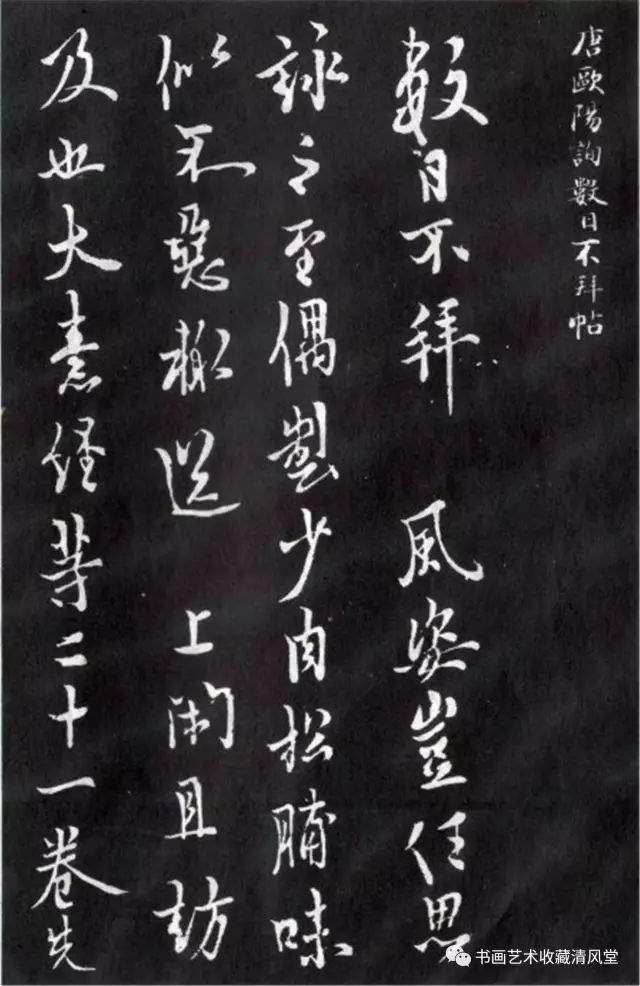 唐歐陽詢數日不拜帖
數日不拜 風姿豈任思
詠之至偶製少肉松脯味
似不惡輒送 上 且訪
及也大 經等二十一卷先
书画艺术收藏清风堂